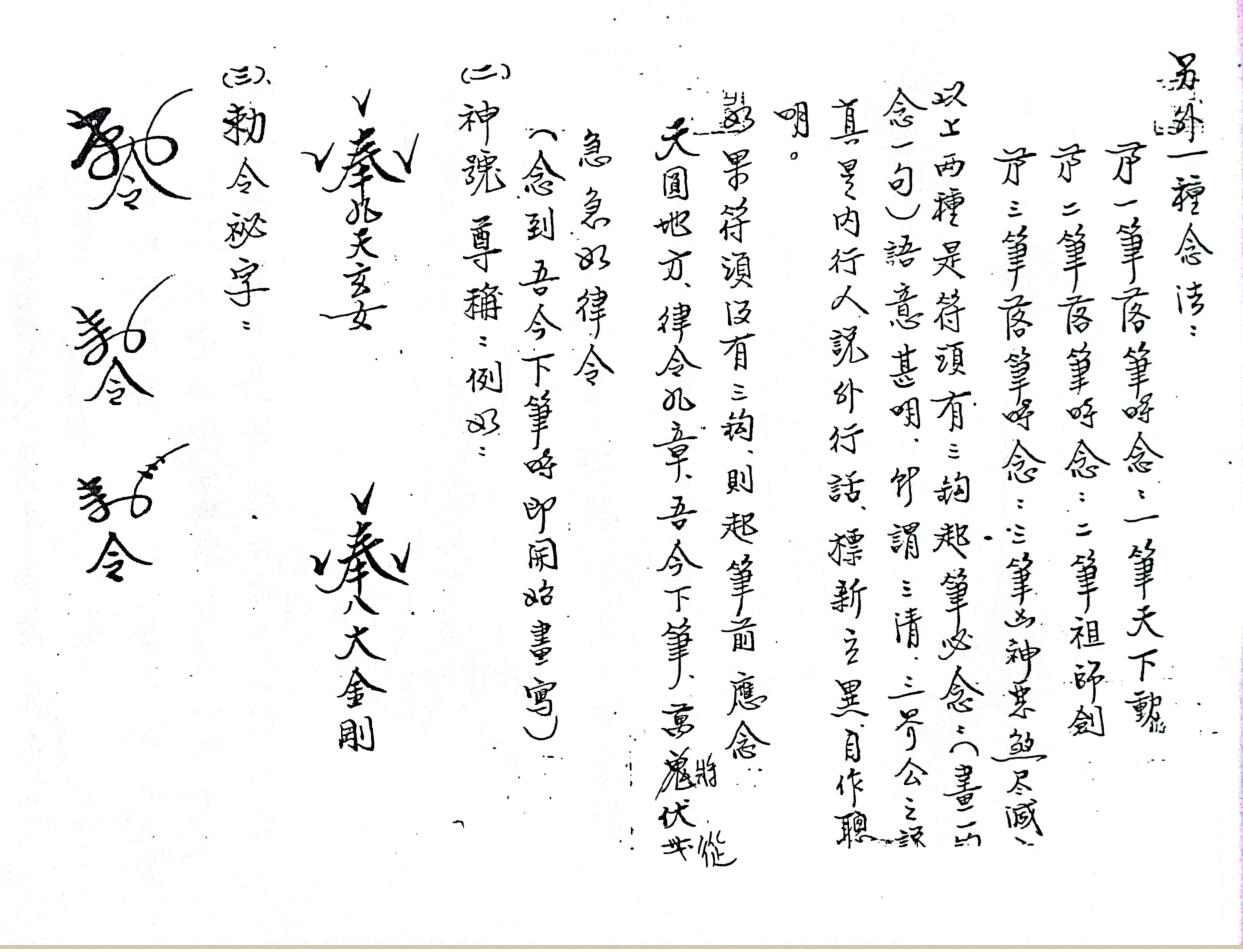 另外一種念法：
第一筆落筆時念：一筆天下動
第二筆落筆時念：二筆祖師劍
第三筆落筆時念：三筆凶神惡煞尽滅、
以上兩種是符頭有三鈎起筆必念：（畫一
念一句）語意甚明、所謂三清、三界公之說
真是内行人說外行話、標新立異、自作聰
明。
如果符頭没有三鈎、則起筆前應念
天圓地方、律令九章、吾今下筆、萬鬼伏
將 從
急急如律令
（念到吾今下筆時即開始畫寫）
(二)神號尊稱：例如：
奉九天玄女
奉八大金剛
(三)、勅令祕字：
令
令
令